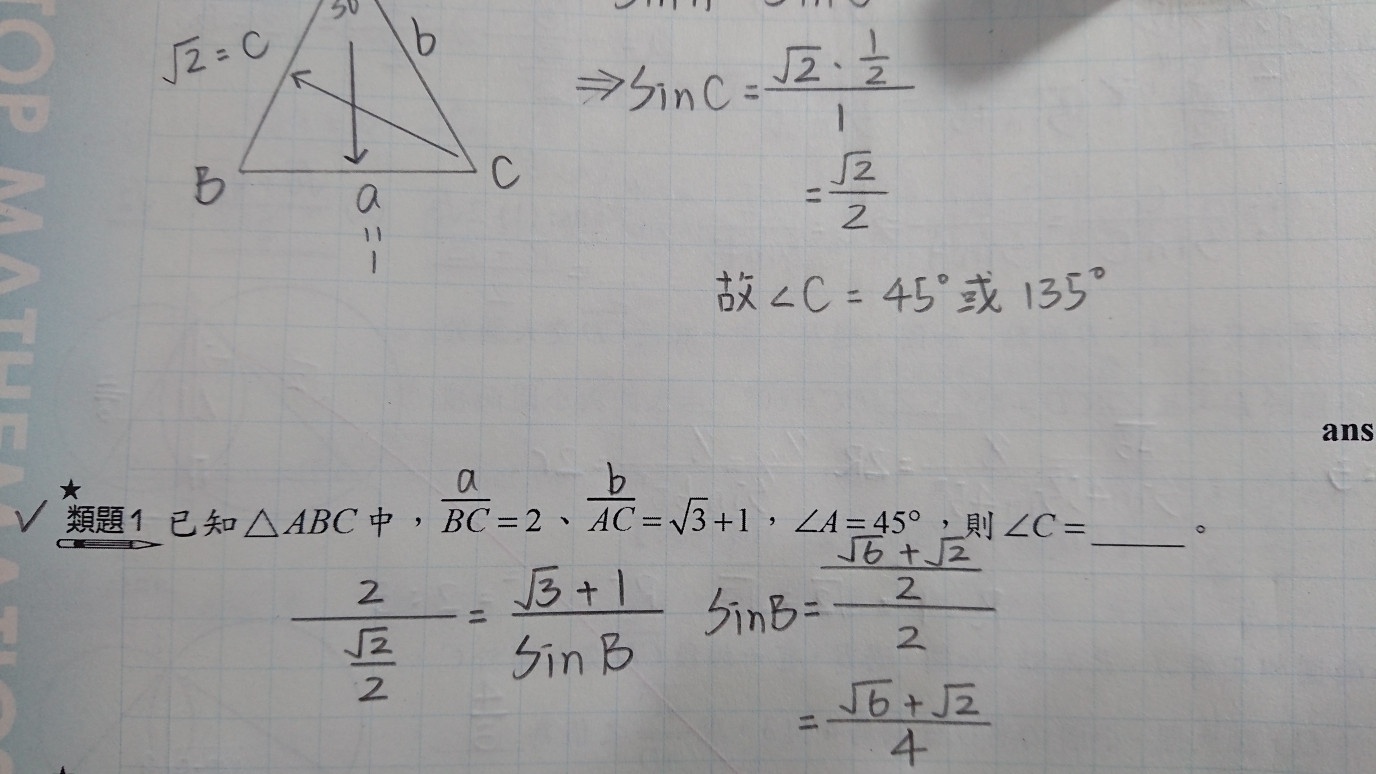 √2 = C
b
B
a
C
=
1
⇒ sinC = (√2 · 1/2) / 1
= √2/2
故∠C = 45° 或 135°
ans
★
a b
✓ 類題1 已知△ABC中，BC=2、AC=√3+1，∠A=45°，則∠C=_____。
2/(√2/2) = (√3+1)/sinB sinB = ((√6+√2)/2)/2
= (√6+√2)/4
TOP MATHEMATICS